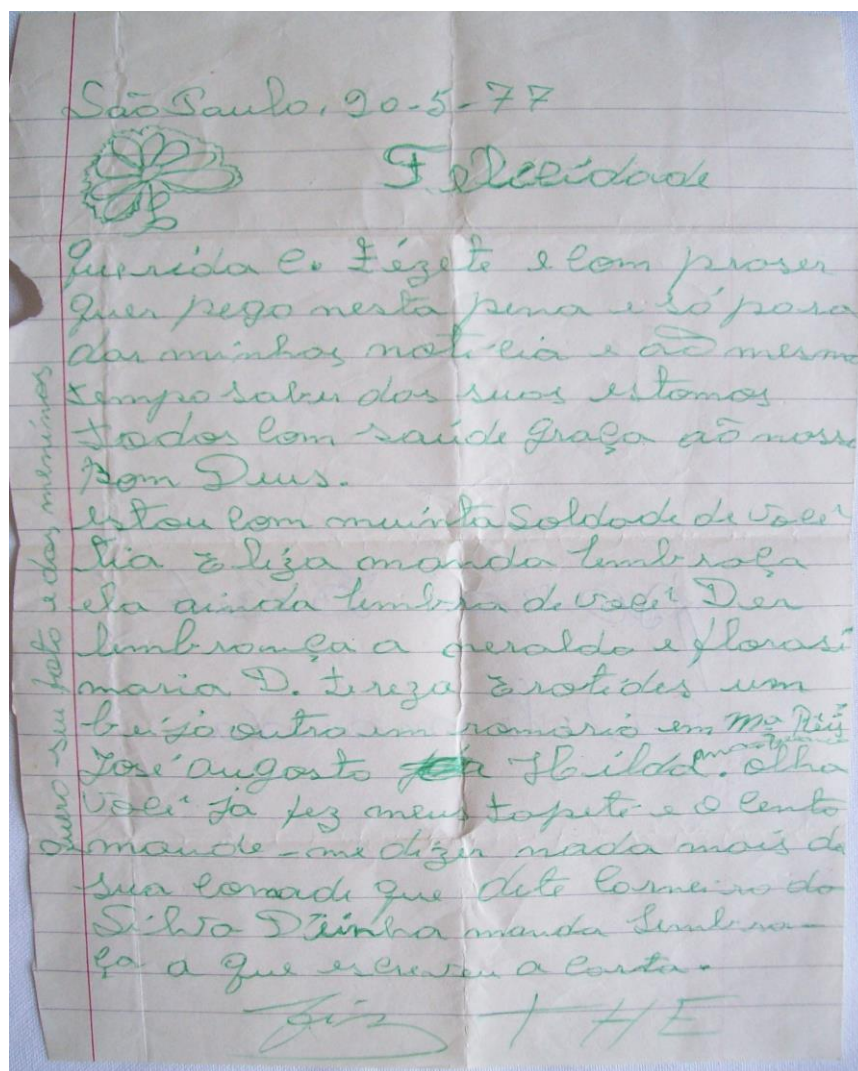 São Paulo, 20-5-77
Felicidade
querida C. Zézete e com praser
quer pego nesta pena e só para
dar minhas noticia e aõ mesmo
tempo saber das suas estamos
todos com saúde graça aõ nosso
Bom Deus.
estou com muinta Soldade de voçê
tia Eliza manda lembraça
ela ainda lembra de voçê Der
lembrança a geraldo e florasi
maria D. tereza Erotides um
beijo outro em romario em Mª
José augosto a Hilda. olha
voçê ja fez meus tapete e o cento
mande-me dizer nada mais da
sua comade que dete Carneiro da
Silva Dainha manda lembra-
ça a que escreveu a carta.
Fim THE
quero seu foto e das meninas